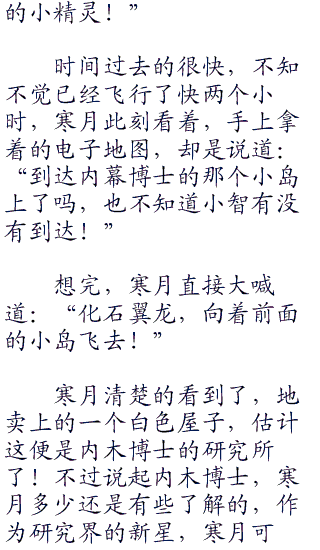 的小精灵！”
时间过去的很快，不知
不觉已经飞行了快两个小
时，寒月此刻看着，手上拿
着的电子地图，却是说道：
“到达内幕博士的那个小岛
上了吗，也不知道小智有没
有到达！”
想完，寒月直接大喊
道：“化石翼龙，向着前面
的小岛飞去！”
寒月清楚的看到了，地
卖上的一个白色屋子，估计
这便是内木博士的研究所
了！不过说起内木博士，寒
月多少还是有些了解的，作
为研究界的新星，寒月可